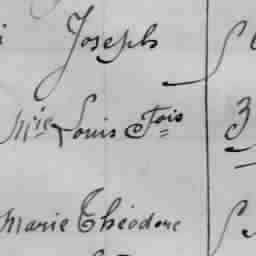 Joseph
Mie Louis Fois 3
Marie Théodore